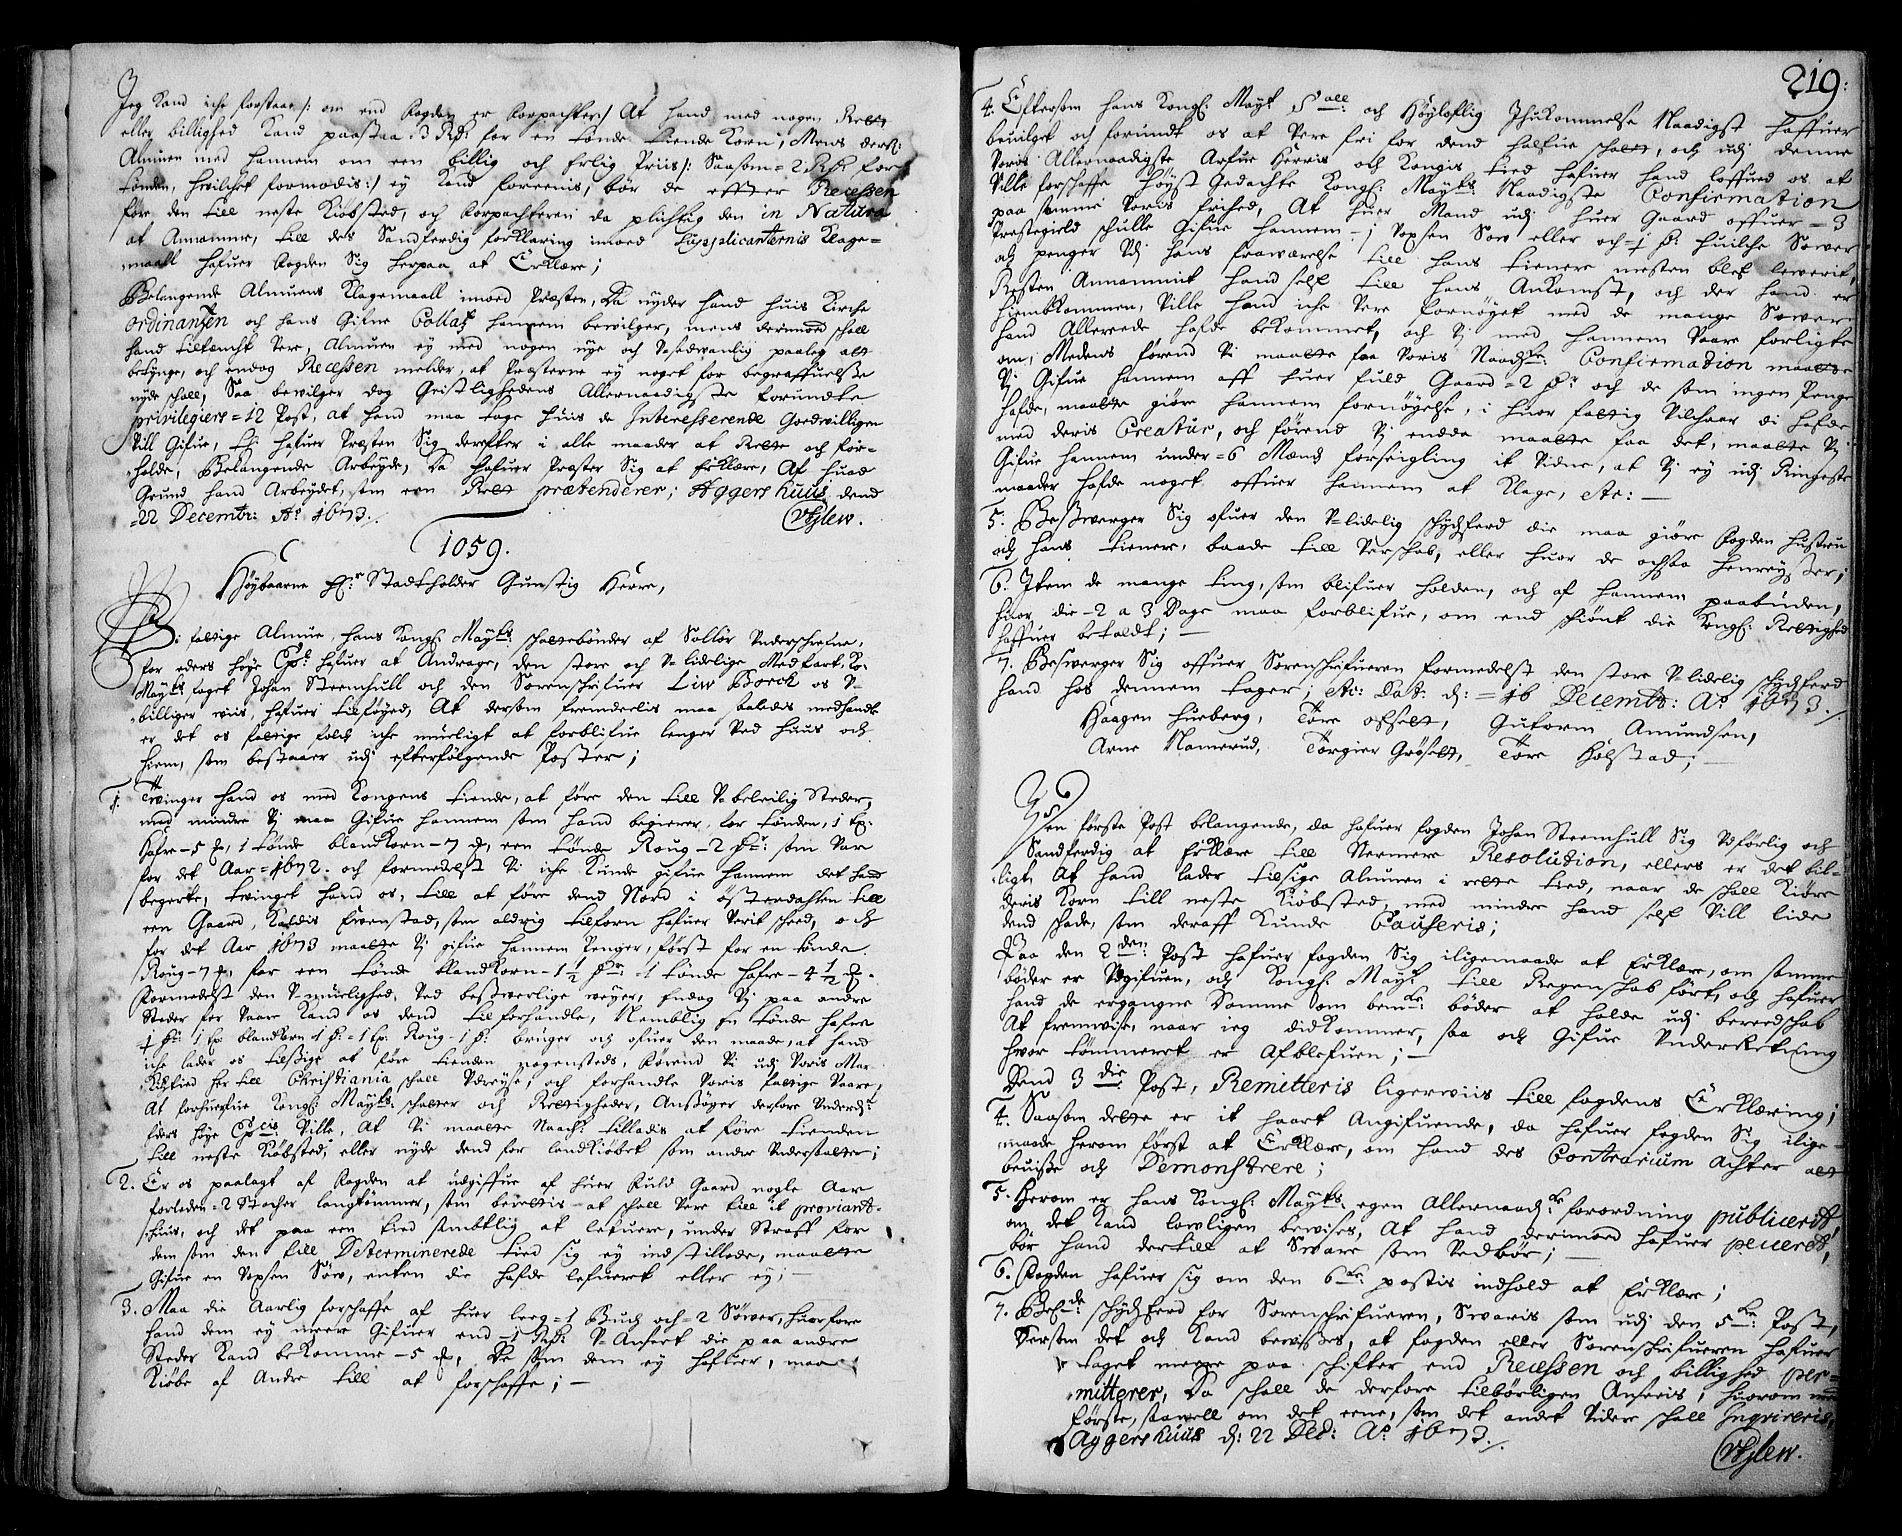 Jeg kand iche forstaae /: om end Fogden er Forpachter :/ At hand med nogen Rett
eller billighed kand paastaa 3 Rdr for en tønde tiende Korn, Mens ders:
Almuen med hannem om een billig och Erlig Priis /: Saasom = 2 Rdr for
tønden, hvilchet formodis :/ ey kand foreenis, bør de effter Recessen
føre den till neste Kiøbsted, och Forpachteren da plichtig den in Natura
at Annamme, till des Sandferdig forklaring imod Supplicanternis Klage=
maall hafuer Fogden Sig herpaa at Erklære;
Belangende Almuens Klagemaall imod Præsten, Da nyder hand huis Kirche
Ordinansen och hans Gifne Collatz hannem bevilger, mens derimod schall
hand tiltencht vere, Almuen ey med nogen nye och Usedvanlig paaleg att
besynge, och endog Recessen melder, at Præsterne ey noget for begraffuelse
nyde schall, Saa bevilger dog Geistlighedens Allernaadigste forundte
privilegiers = 12 Post, at hand maa tage huis de Interesserende Goedwilligen
Vill Gifue, thi hafuer Præsten Sig derefter i alle maader at Rette och for=
holde, Belangende Arbeyde, Da hafuer Præsten Sig at Erklære, Af huad
Grund hand Arbeydet, som een Rett prætenderer; Aggershuus dend
22 Decembr: Ao 1673./.
1059.
Høybaarne Hr Stadtholder Gunstig Herre,
Vi fattige Almue, hans Kongl: Mayts schattebønder af Sollør Underschrefne,
for eders høye Exc: hafuer at Andrage, den store och U-lidelige Medfart, Ko:
Mayts foget Johan Steenhull och den Sorenschrifuer Liw Borch os U-
billiger viis hafuer tilføyed, At dersom fremdeelis maa saaledis medhandles
er det os fattige folch iche mueligt at forblifue lenger ved huus och
hiem, som bestaaer udj efterfølgende Poster;
1. Tvinger hand os med Kongens tiende, at føre den till U-beleilig Steder,
med mindre Vj maa Gifue hannem som hand begierer, for tønden, 1 tn:
Hafre - 5 , 1 tønde blandkorn - 7 , een tønde Roug - 2 Rdr: som var
for det Aar = 1672. och formedelst Vi iche kunde gifue hannem det hand
begerte, tvinget hand os, till at føre dend Nord i Østerdahlen till
een Gaard, kaldis Evenstad, som aldrig tilforn hafuer verit scheed, och
for det Aar 1673 maatte Vj gifue hannem Penger, først for en tønde
Roug - 7 , for een tønde blandkorn - 1 ½ Rdr: - 1 tønde Hafre - 4 ½ .
Formedelst den U-muelighed, Ved besverlige veyer, Endog Vj paa andre
Steder for Vaar Land os dend tilforhandle, Nemblig En tønde Hafre
1 tn: blandkorn 1 = 1 tn: Roug - 1 bruger och ofuer den maade, at hand
iche lader os tilsige at føre tienden nogensteds, Førend Vi udj Voris Mar
Kidstied her till Christiania schall Udreyse, och forhandle Voris fattige Vaare,
At forhuerfue Kongl: Mayts: schatter och Rettigheder, Ansøger derfore Underdl:
Eders høye Excis Ville, At Vi maatte Naad: tilladis at føre tienden
till neste Kiøbsted, eller nyde dend for Landkiøbet som andre Undersaatter;
2. Er os paalagt af Fogden at udgiffue af huer Fuld Gaard nogle Aar
forleden = 2 Stocher langtømmer, som berettis at schall Vere till it proviant-
huus, och det paa een tied samtlig at lefuere, under Straff for
dem som den till Determinerede tied sig ey indstillede, maatte
Gifue en Voxsen Sow, enten die hafde lefuert eller ey;
3. Maa die Aarlig forschaffe af huer leeg = 1 Buch och = 2 Søwer, huorfore
hand dem ey meere Gifuer end - 1 Rdr: U-Anseet die paa andre
Steder kand bekomme - 5 , De som dem ey hafuer, maa
Kiøbe af Andre till at forschaffe;
219:
4. Eftersom hans Kongl: Mayt S all: och Høyloflig Ihukommelse Naadigst haffuer
bevilget och forundt os at Vere frei for dend halfue schatt, och udj denne
Voris Allernaadigste Arfue Herris och Kongis tied hafuer hand loffued os at
Ville forschaffe Høyst Gedachte Kongl: Mayts: Naadigste Confirmation
paa samme Voris frihed, At huer Mand udj huer Gaard offuer = 3
Præstegield schulle Gifue hannem - 1 Voxsen Sow eller och = 1 huilche Søwer
och penger Udj hans fraværelse till hans tienere mesten blef leverit,
Resten Annammit hand self till hans Ankomst, och der hand er
hiembkommen, Ville hand iche vere fornøyet med de mange Søwer
hand Allerede hafde bekommet, och Vj med hannem Vaare forligte
om, Medens førend Vi maatte faa Voris Naadste Confirmation maatte
Vj Gifue hannem aff huer fuld Gaard = 2 och de som ingen Penge
hafde, maatte giøre hannem fornøyelse, i huor fattig Vilchaar di hafde
med deris Creatur, och førend Vj endda maatte faa det, maatte Vj
Gifue hannem under = 6 Mænds forseigling it Vidne, at Vj ey udj Ringeste
maader hafde noget offuer hannem at Klage, etc: -
5. Besverger Sig ofuer den U-lidelig schydsferd die maa giøre Fogden hustru
och hans tienere, baade till Verschab, eller huor de ochsaa henreyser;
6. Item de mange ting, som blifuer holden, och af hannem paabuden,
huor die - 2 a 3 Dage maa forblifue, om end schiønt die Kongl: Rettighed
haffuer betaldt; -
7. Besverger Sig offuer Sorenschrifueren formedelst den store U-lidelig schydsferd
hand hos dennem tager; etc: Dat: d: = 16 Decembr: Ao 1673./.
Haagen Hueberg, Tore Ofset, Gutorm Amundsen,
Arne Namerud, Torgier Grøset, Tore Holstad;
Den første Post belangende, da hafuer fogden Johan Steenhull Sig Udførlig och
Sandferdig at Erklære till Nermere Resolution, ellers er det bil-
ligt At hand lader tilsige Almuen i rette tied, naar de schall Kiøre
deris Korn till neste Kiøbsted, med mindre hand self Vill lide
dend schade, som deraff kunde Causeris;
Paa den 2den: Post hafuer fogden Sig iligemaade at Erklære, om samme
bøder er Udgifuen, och Kongl: Mayt: till Regenschab ført, och hafuer
hand de ergangne Domme som bemte: bøder at holde udj beredschab
At fremvise, naar ieg didkommer, saa och Gifue Underretning
hvor tømmeret er Afblefuen; -
Dend 3die: Post, Remitteris ligerviis till fogdens Erklæring;
4. Saasom dette er it haart Angifuende, da hafuer fogden Sig ilige-
maade herom først at Erklære, om hand des Contrarium achter att
beviise och Demonstrere;
5. Herom er hans Kongl: Mayts: egen Allernaadte forordning publicerit,
om det kand lowligen bewises, At hand derimod hafuer peccerit,
bør hand dertill at Svare som Vedbør; -
6. Fogden hafuer sig om den 6te: postis indhold at Erklære;
7. Belde schydsferd for Sorenschrifueren, Svaris som udj den 5te: Post,
Dersom det och kand beviises, at fogden eller Sorenschrifueren hafuer
taget meere paa schifter end Recessen och billighed per=
mitterer, Da schall de derfore tilbørligen Anseeis, huorom med
første, saavell om det eene, som det andet Videre schall Inqvireris,
Aggershuus d: 22 Dec: Ao 1673./.